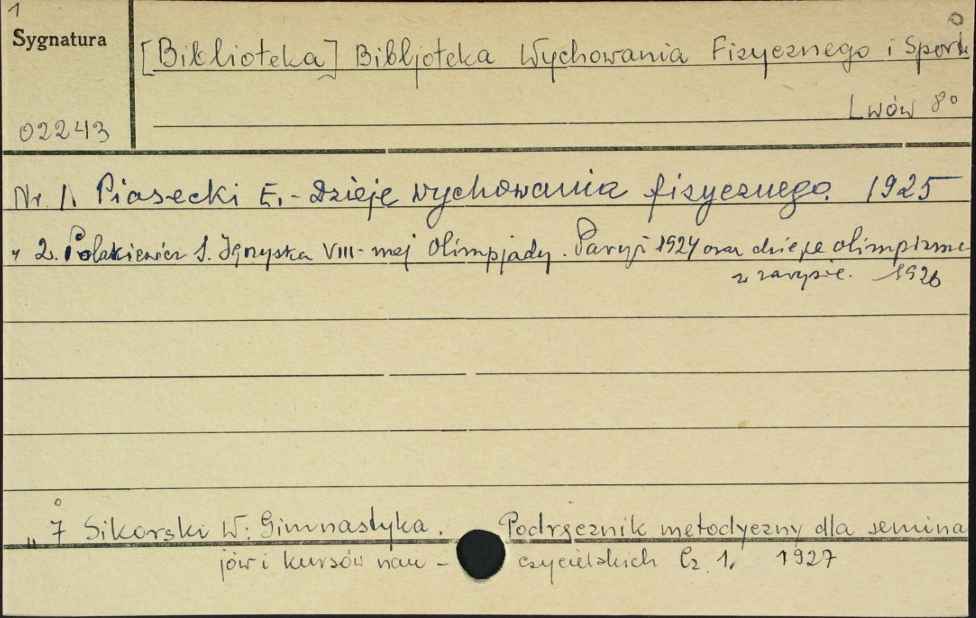 1
Sygnatura
[Biblioteka] Bibljoteka Wychowania Fizycznego i Sportu
Lwów 8°
02243
Nr. 1. Piasecki E. - Dzieje wychowania fizycznego. 1925
" 2. Polakiewicz S. Igrzyska VIII-mej Olimpjady. Paryż 1924 oraz dzieje olimpizmu
w zarysie. 1926
" 7 Sikorski W: Gimnastyka. Podręcznik metodyczny dla semina
rjów i kursów nau - czycielskich Cz. 1. 1927